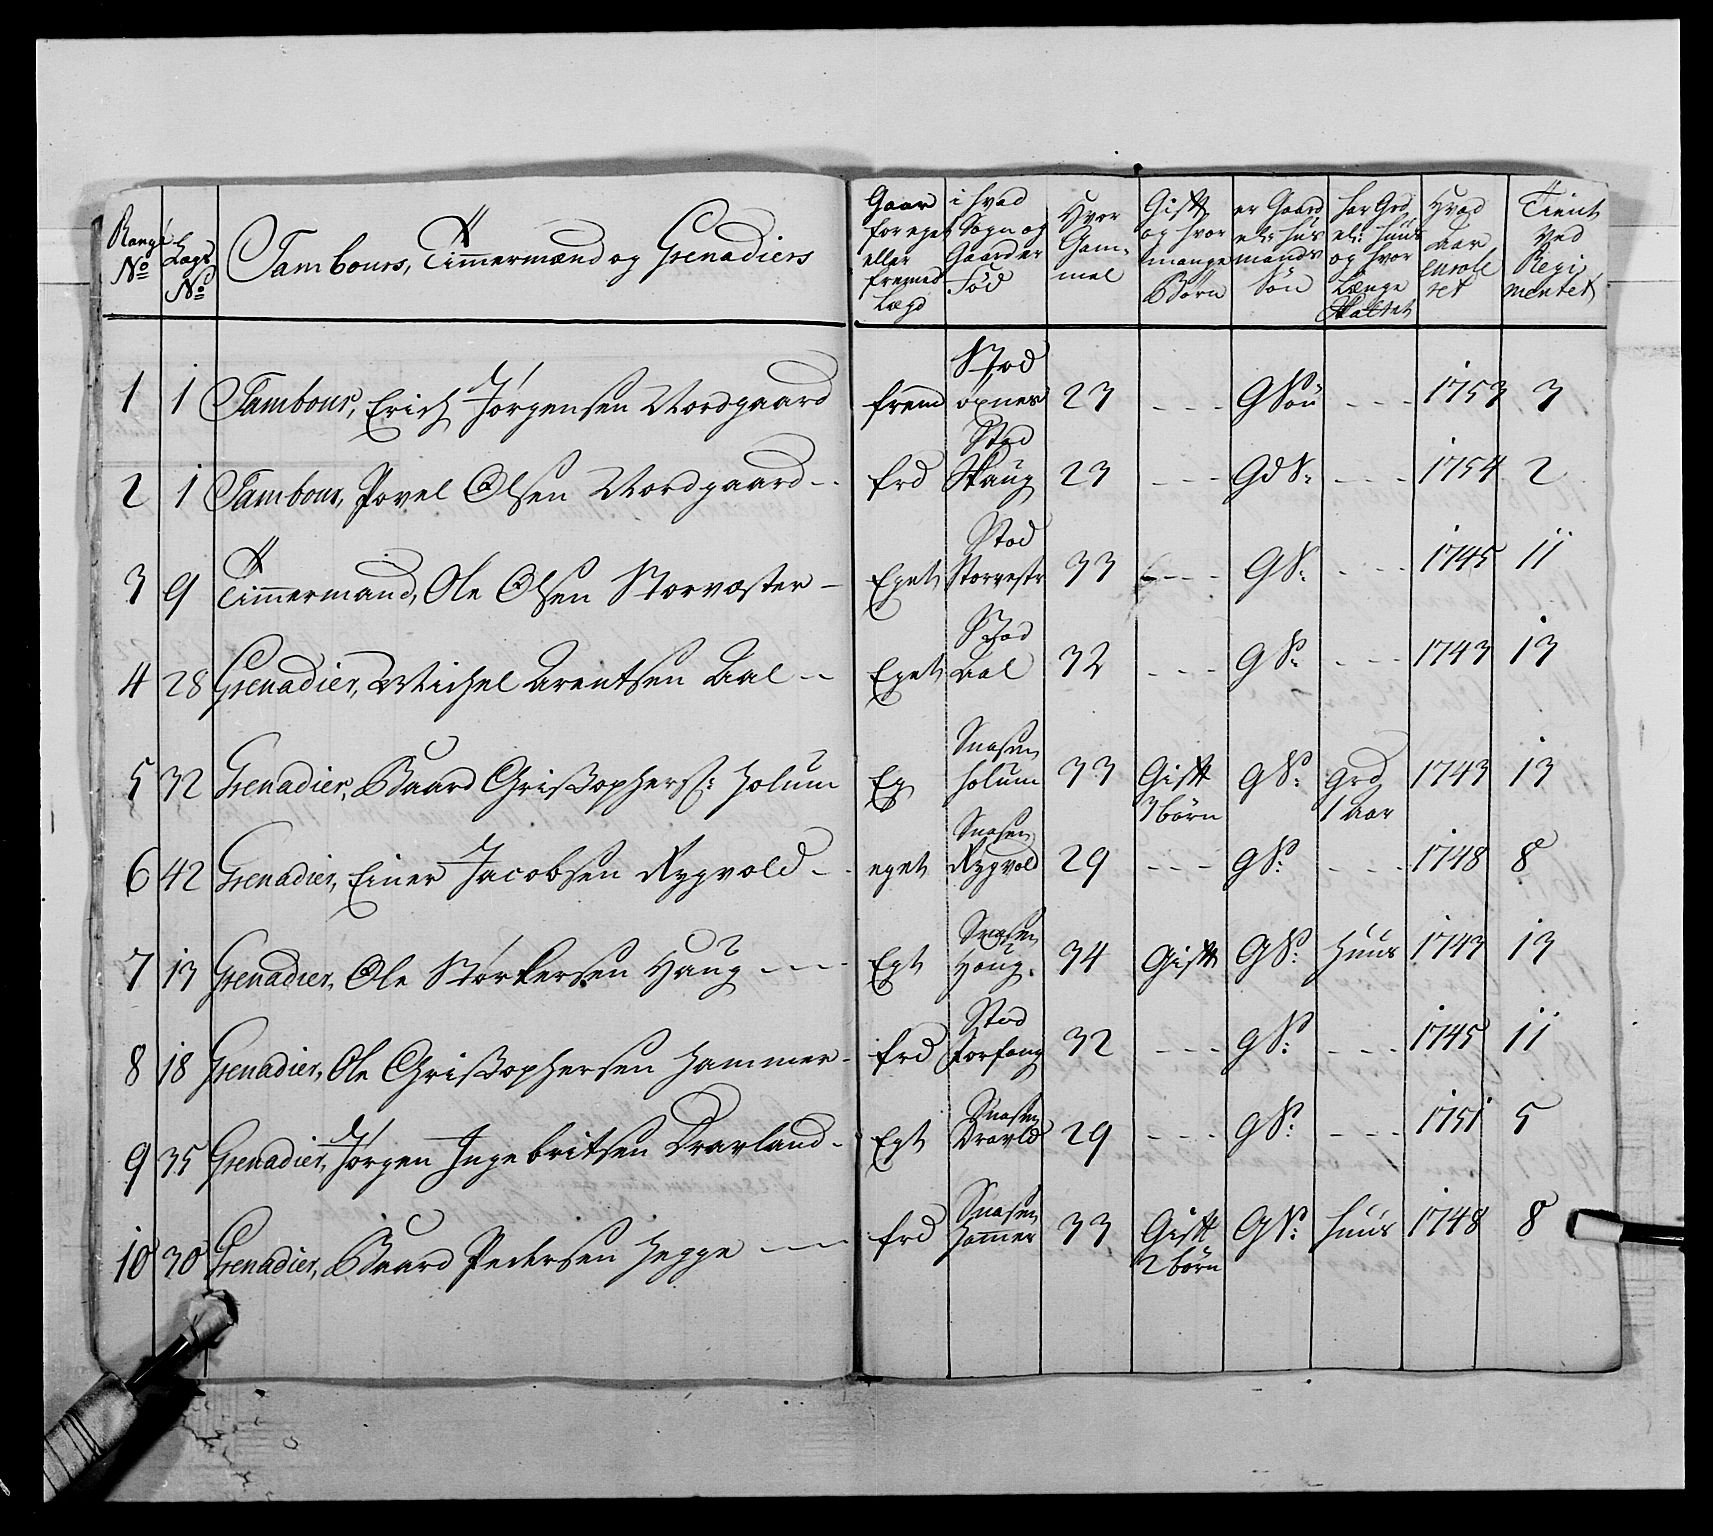 Range No
Lags No
Tambours, Timmermænd og Grenadiers
Gaar for eget eller fremed Lægd
i hvad Sogn og Gaard er Fød
Hvor Gam- mel
Gift og hvor mange Børn
er Gaard el: hus mands Søn
har Grd el: huus og hvor Længe
Hvad Aar enrole ret
Tient ved Regi mentet
1 1 Tambour, Erich Jørgensen Nordgaard frem Stod öxnes 23 - - - G Søn - - - 1753 3
2 1 Tambour, Povel Olsen Nordgaard - - frd Stod Skaug 23 - - - Gd S: - - - 1754 2
3 9 Timmermand, Ole Olsen Storvæster - Eget Stod Storvestr 33 - - - G S: - - - 1745 11
4 28 Grenadier, Michel Arentsen Aal - - Eget Stod Aal 32 - - - G S: - - - 1743 13
5 32 Grenadier, Baard Christophers: Holum Eg Snaasen Holum 33 Gift 3 börn G S: grd 1 Aar 1743 13
6 42 Grenadier, Einer Jacobsen Rygvold - - eget Snaasen Rygvold 29 - - - g S: - - - 1748 8
7 13 Grenadier, Ole Størkersen Haug - - - Egt Snaasen Haug. 34 Gift G S: Huus 1743 13
8 18 Grenadier, Ole Christophersen Hammer - frd Stod Forfang 32 - - - g S: - - - 1745 11
9 35 Grenadier, Jørgen Ingebritsen Dravland - Egt Snaasen Dravld 29 - - - g S: - - - 1751 5
10 30 Grenadier, Baard Pedersen Hegge - - - frd Snaasen Hammer 33 Gift 2 börn G S: huus 1748 8